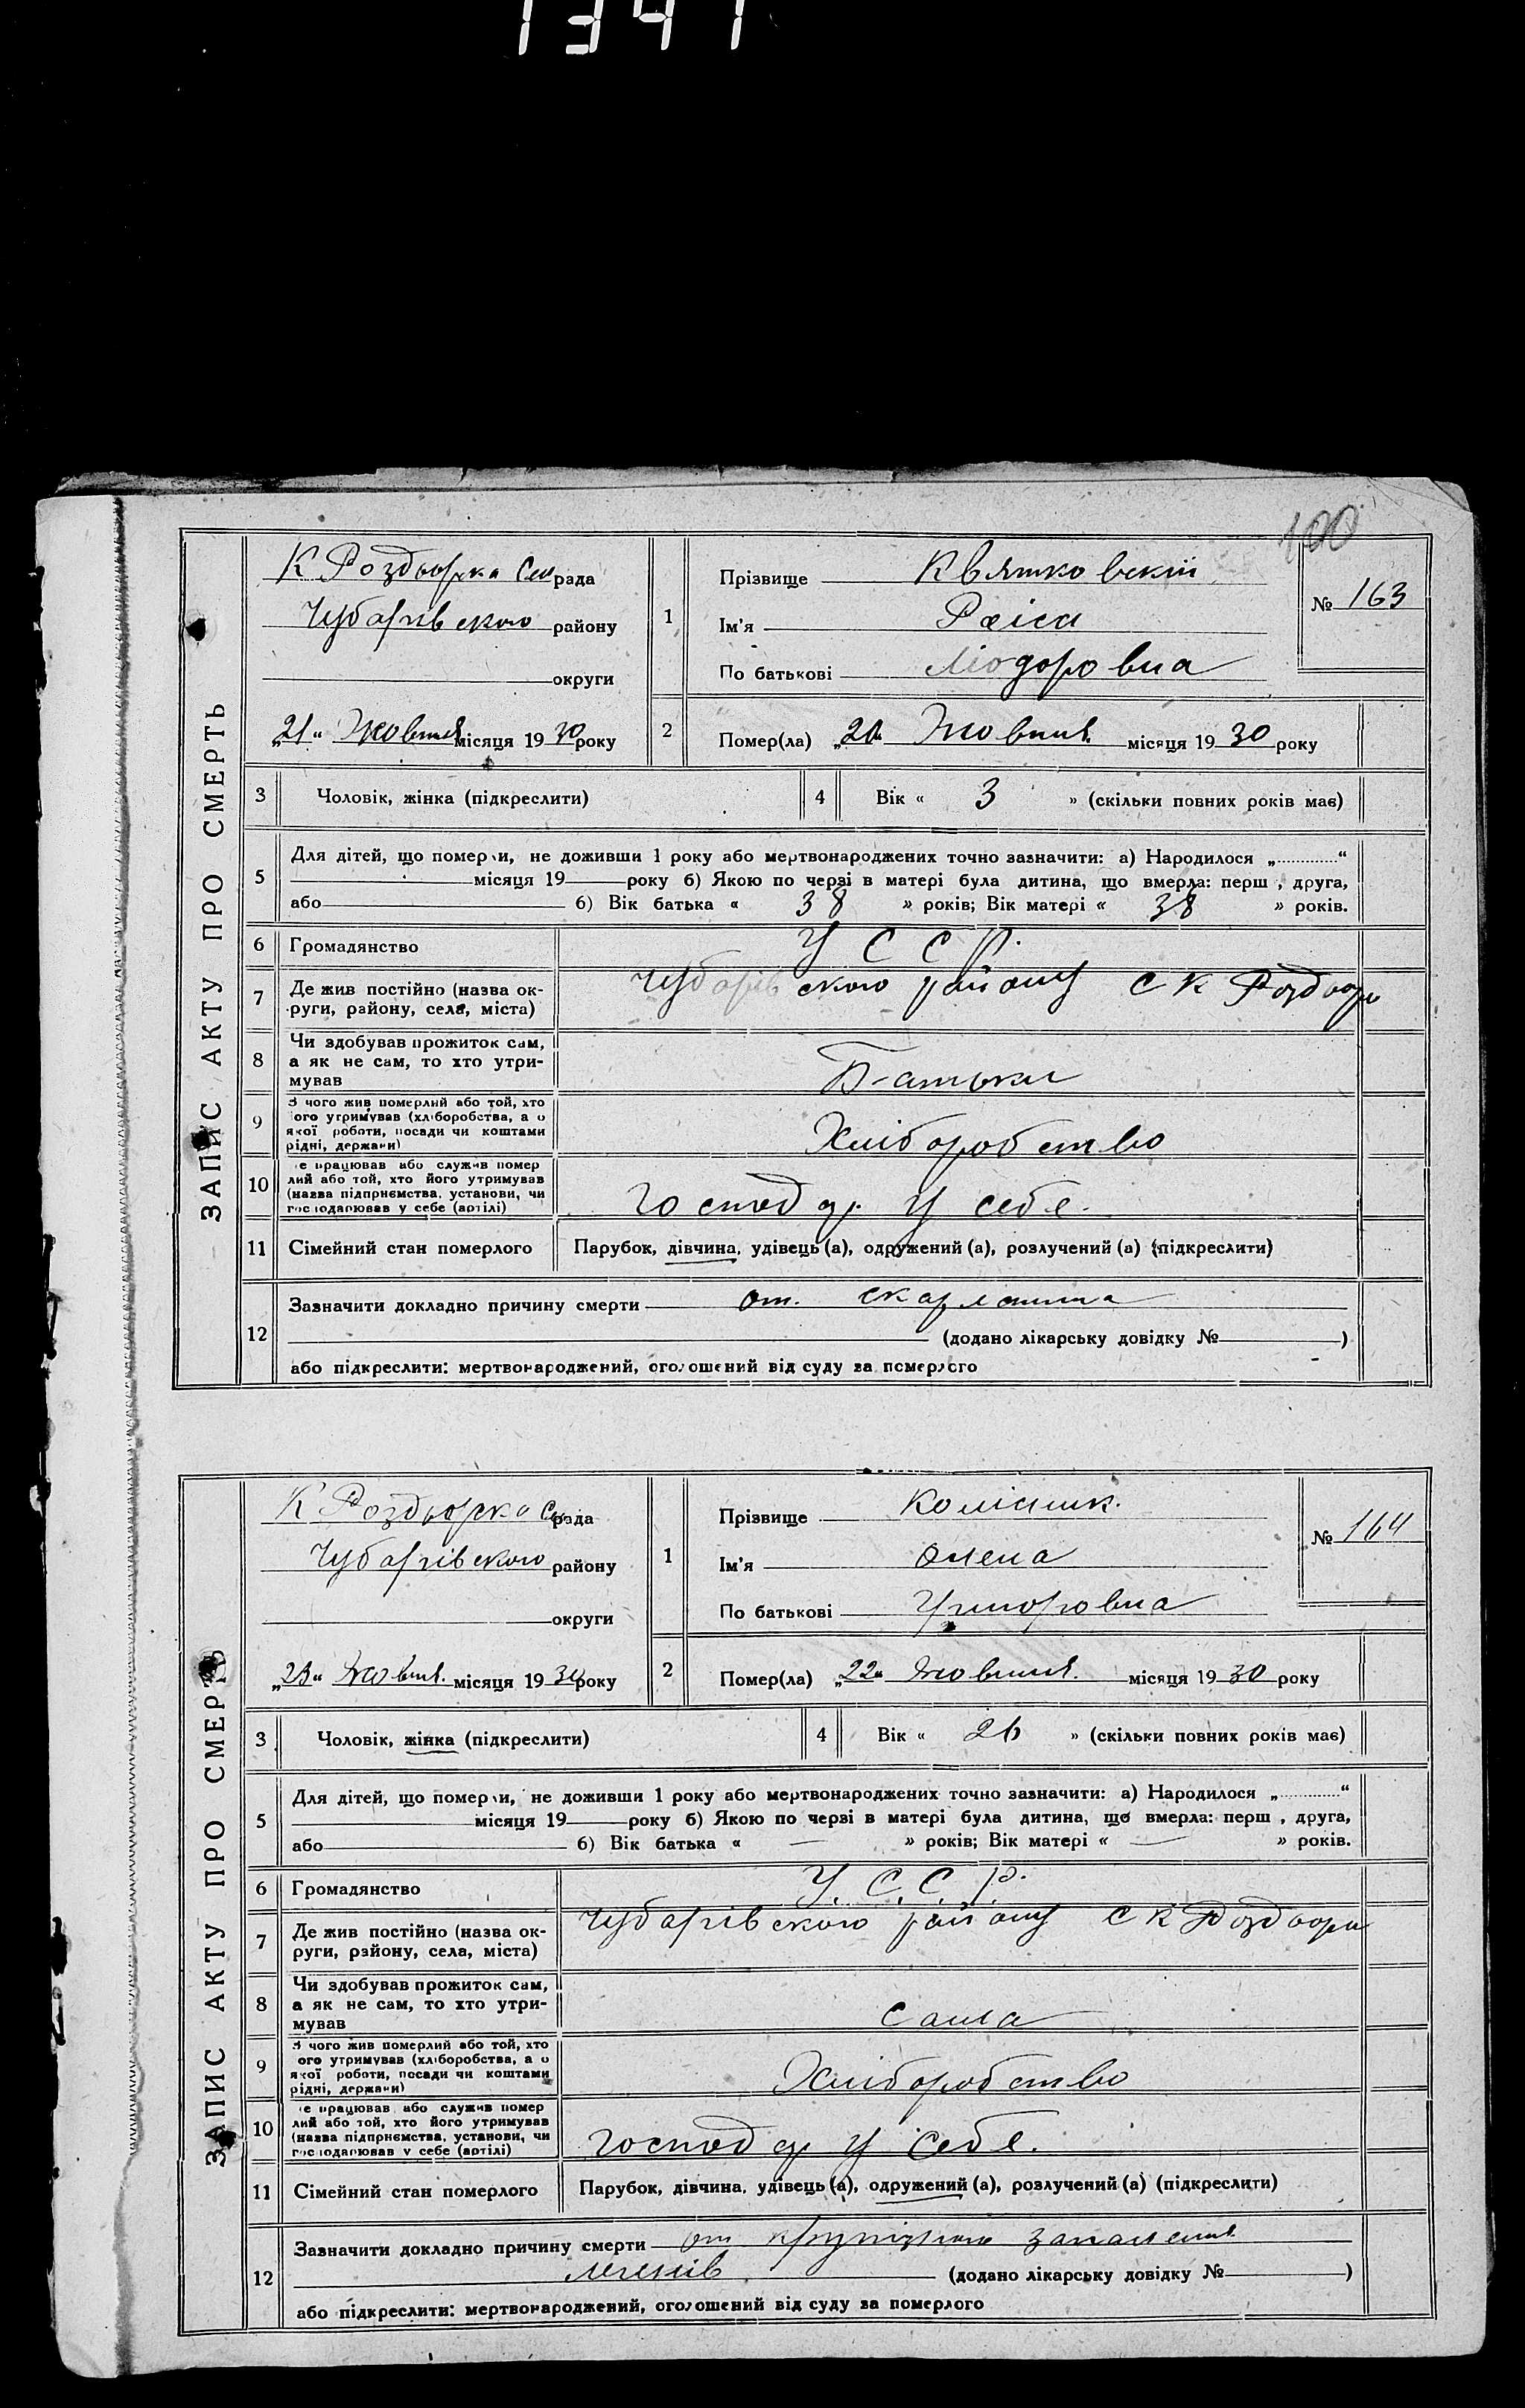 1347
100
ЗАПИС АКТУ ПРО СМЕРТЬ
К Роздорска Сел рада
Чубарівского району
округи
„21“ Жовтня місяця 1930 року
1
Прізвище Квятковский
Ім'я Раіса
По батькові Ліодоровна
№ 163
2
Помер(ла) „20“ Жовтня місяця 1930 року
3 Чоловік, жінка (підкреслити)
4 Вік « 3 » (скільки повних років має)
5 Для дітей, що померли, не доживши 1 року або мертвонароджених точно зазначити: а) Народилося „ “
місяця 19 року б) Якою по черзі в матері була дитина, що вмерла: перш , друга,
або 6) Вік батька « 38 » років; Вік матері « 38 » років.
6 Громадянство У С С Р.
7 Де жив постійно (назва ок-
руги, району, села, міста)
Чубарівского району С К Роздори
8 Чи здобував прожиток сам,
а як не сам, то хто утри-
мував
Батьки
9 З чого жив померлий або той, хто
ого утримував (хліборобства, а о
якої роботи, посади чи коштами
рідні, держави)
Хліборобство
10 е працював або служив помер
лий або той, хто його утримував
(назва підприємства, установи, чи
господарював у себе (артілі)
Господар у себе.
11 Сімейний стан померлого Парубок, дівчина, удівець (а), одружений (а), розлучений (а) (підкреслити)
12 Зазначити докладно причину смерти от. скарлатина
(додано лікарську довідку № )
або підкреслити: мертвонароджений, оголошений від суду за померлого
ЗАПИС АКТУ ПРО СМЕРТЬ
К Роздорска Сел рада
Чубарівского району
округи
„23“ Жовтня. місяця 1930 року
1
Прізвище Колісник.
Ім'я Олена
По батькові
№ 164
2
Помер(ла) „22“ Жовтня. місяця 1930 року
3 Чоловік, жінка (підкреслити)
4 Вік « 26 » (скільки повних років має)
5 Для дітей, що померли, не доживши 1 року або мертвонароджених точно зазначити: а) Народилося „ “
місяця 19 року б) Якою по черзі в матері була дитина, що вмерла: перш , друга,
або 6) Вік батька « — » років; Вік матері « — » років.
6 Громадянство У. С. С. Р.
7 Де жив постійно (назва ок-
руги, району, села, міста)
Чубарівского району С К Роздори
8 Чи здобував прожиток сам,
а як не сам, то хто утри-
мував
Сама
9 З чого жив померлий або той, хто
ого утримував (хліборобства, а о
якої роботи, посади чи коштами
рідні, держави)
Хліборобство
10 е працював або служив помер
лий або той, хто його утримував
(назва підприємства, установи, чи
господарював у себе (артілі)
Господар у себе.
11 Сімейний стан померлого Парубок, дівчина, удівець (а), одружений (а), розлучений (а) (підкреслити)
12 Зазначити докладно причину смерти от крупізного запалення
легенів (додано лікарську довідку № )
або підкреслити: мертвонароджений, оголошений від суду за померлого